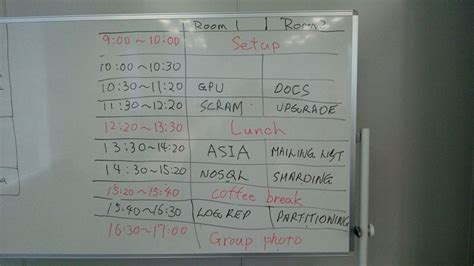 Room 1 Room 2
9:00~10:00 Setup
10:00~10:30
10:30~11:20 GPU DOCS
11:30~12:20 SCRAM UPGRADE
12:20~13:30 Lunch
13:30~14:20 ASIA MAILING LIST
14:30~15:20 NOSQL SHARDING
15:20~15:40 Coffee break
15:40~16:30 LOG REP PARTITIONING
16:30~17:00 Group photo